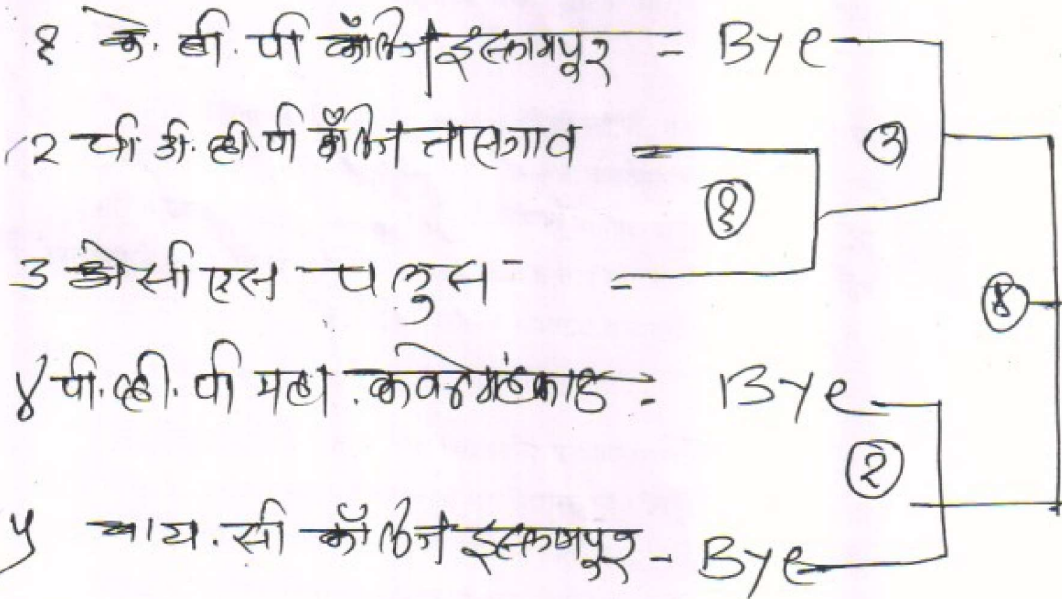 १ के. बी. पी कॉलेज इस्लामपूर = Bye
③
२ पी. डी. व्ही. पी कॉलेज तासगाव
①
३ ऐ सी एस पलुस =
④
४ पी. व्ही. पी महा. कवठेमहंकाळ - Bye
②
५ वाय. सी कॉलेज इस्लामपूर - Bye